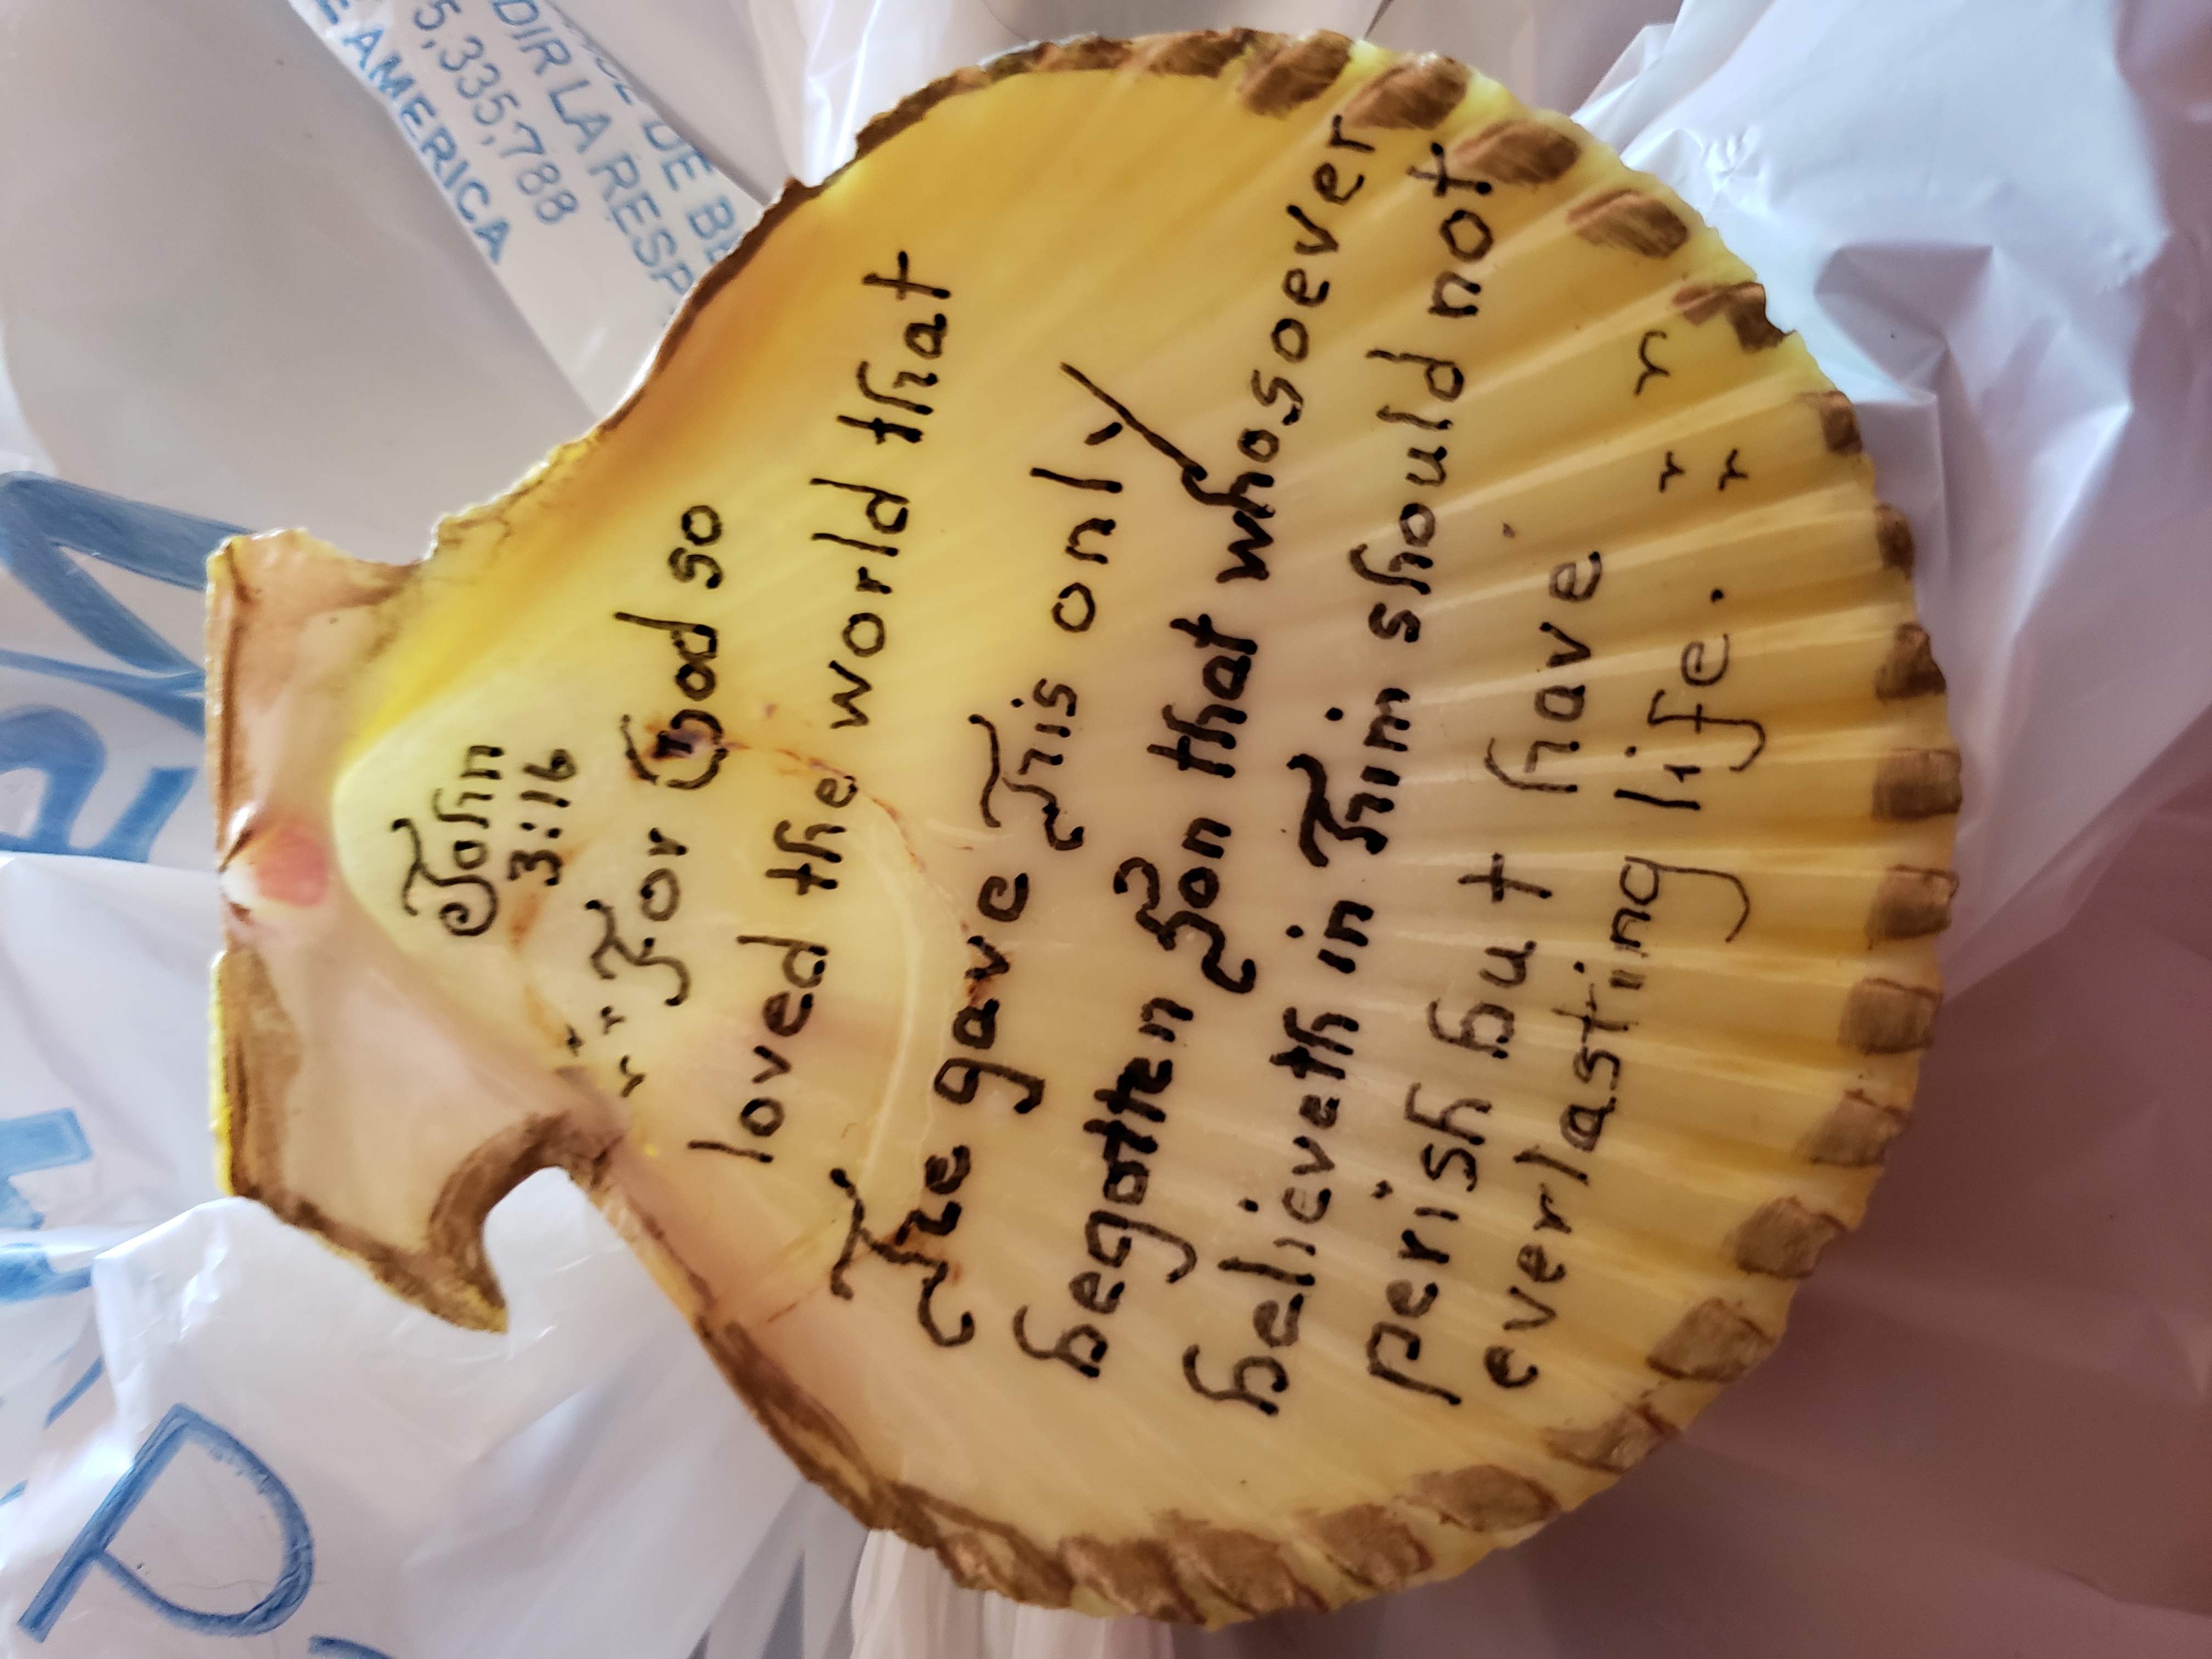 John
3:16
For God so
loved the world that
He gave His only
begotten Son that whosoever
believeth in Him should not
perish but have
everlasting life.
DE AMERICA
5,335,788
DIR LA RESP
DE